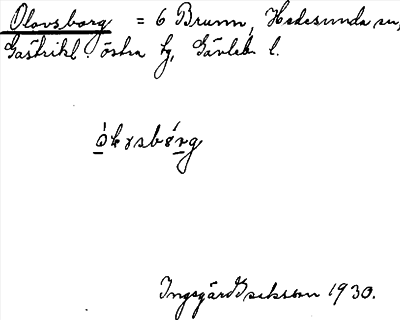 Olovsborg = 6 Brunn, Hedesunda sn,
Gästrikl. östra tg, Gävleb. l.
ó̱kɤsbǿ̱rg
Ingegärd Isaksson 1930.